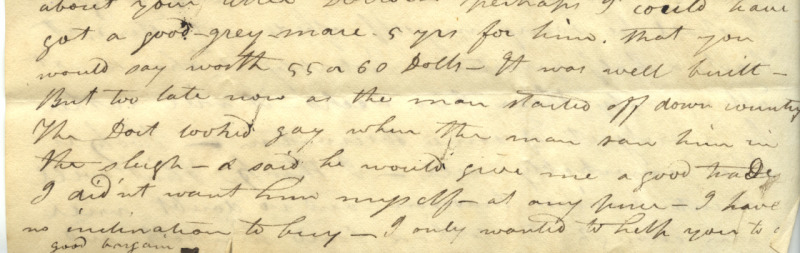 about your perhaps I could have
got a good grey mare 5 yrs for him. that you
would say worth 55 or 60 Dolls – It was well built –
But too late now as the man started off down country
The Doct looked gay when the man saw him in
the sleigh – & said he would give me a good trade
I did'nt want him myself – at any price – I have
no inclination to buy – I only wanted to help you to a
good bargain